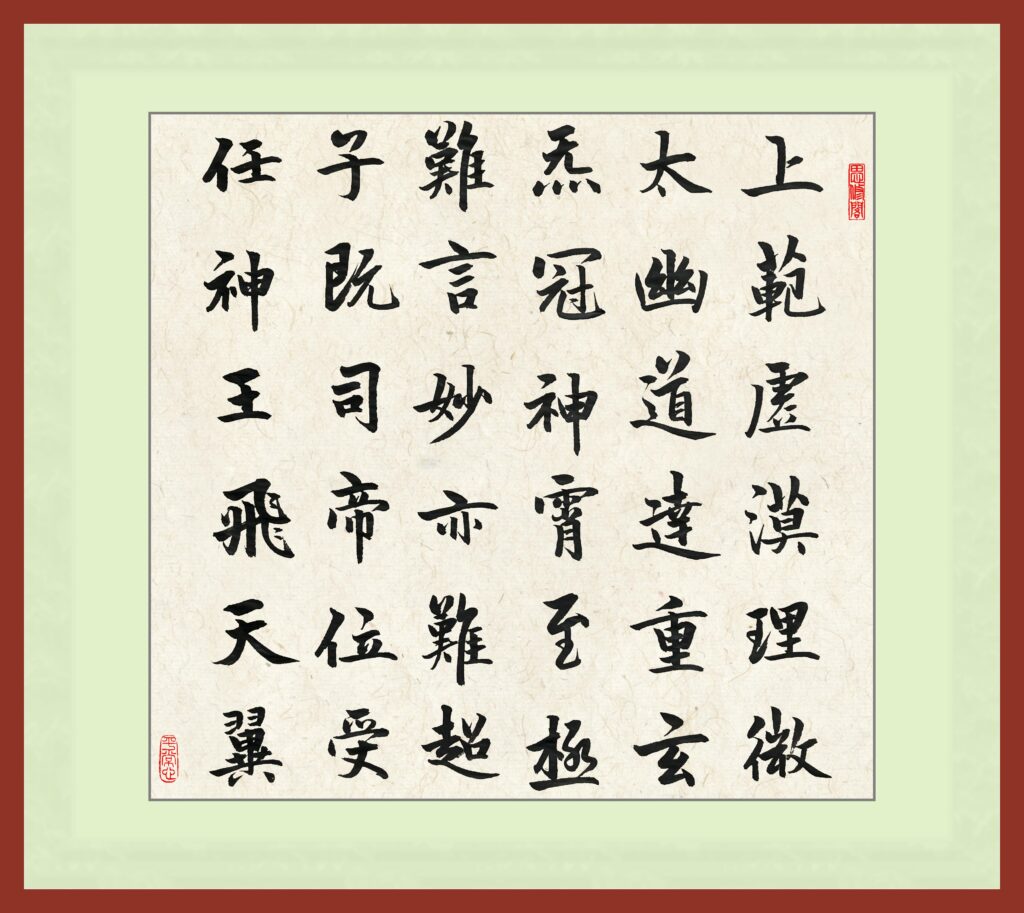 思海閣
上範虛漠理微
太幽道達重玄
炁冠神霄至極
難言妙亦難超
子既司帝位受
任神王飛天翼
平常心